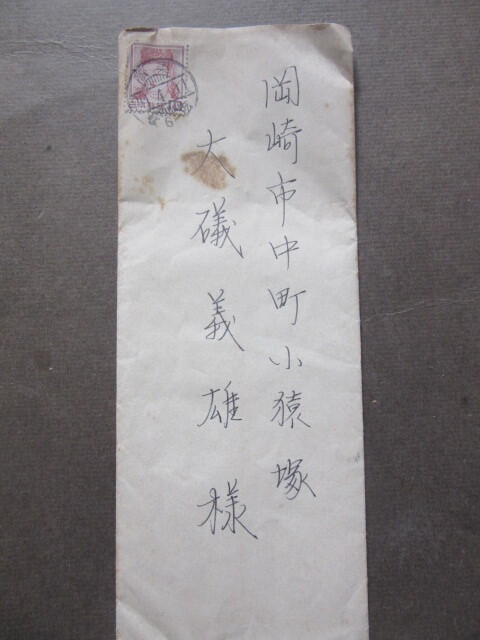 岡崎市中町小猿塚
大礒義雄様